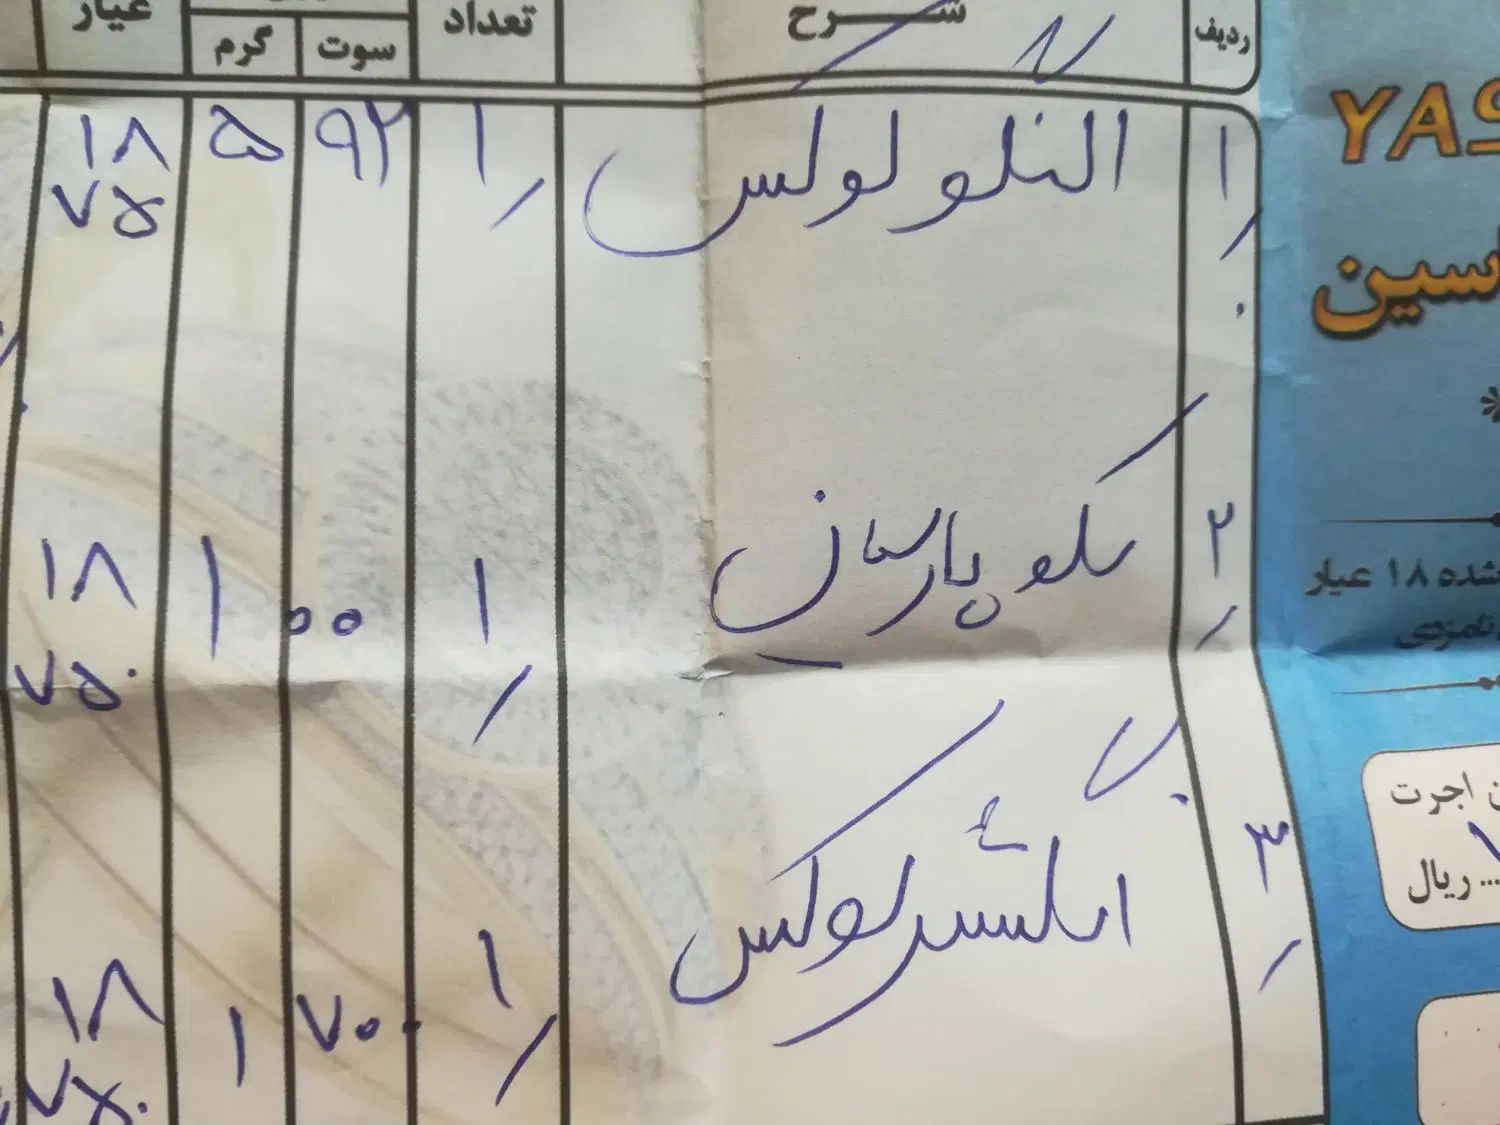 ردیف شـــــرح تعداد سوت گرم عیار
۱ النگو لوکس ۱ ۹۲ ۵ ۱۸
۷۵
۲ پارسیان ۱ ۰۰ ۱ ۱۸
۷۵۰
۳ انگشتر لوکس ۱ ۷۰۰ ۱ ۱۸
۷۵۰
YAS
اسین
شده ۱۸ عیار
نامزدی
اجرت
ریال